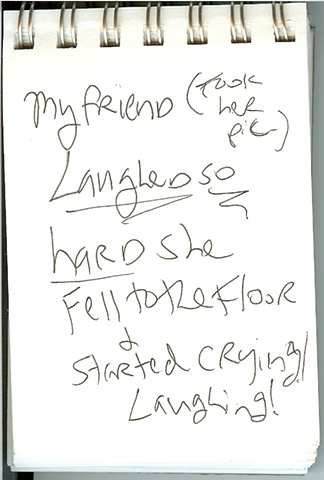 My friend (took
her
pic)
Laughed so
hard she
Fell to the Floor
&
started crying/
Laughing!